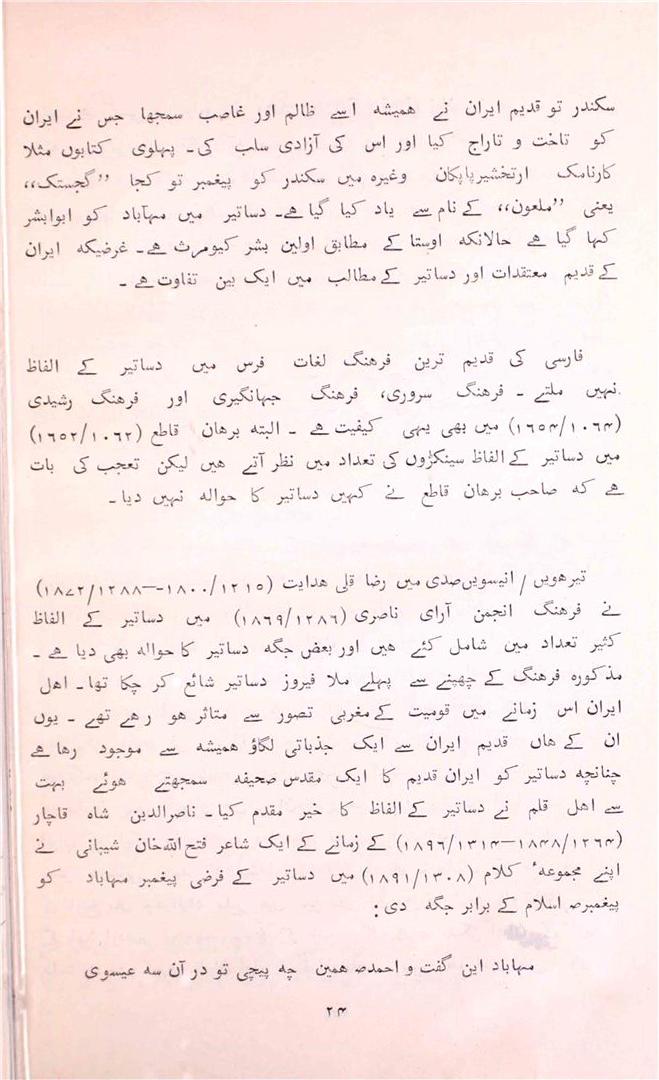 سکندر تو قدیم ایران نے همیشه اسے ظالم اور غاصب سمجھا جس نے ایران
کو تاخت و تاراج کیا اور اس کی آزادی سلب کی۔ پہلوی کتابوں مثلا
کارنامک ارتخشیرپاپکان وغیره میں سکندر کو پیغمبر تو کجا ’’گجستک،،
یعنی ’’ملعون،، کے نام سے یاد کیا گیا ہے۔ دساتیر میں مہاباد کو ابوابشر
کہا گیا ہے حالانکه اوستا کے مطابق اولین بشر کیومرث ہے۔ غرضیکه ایران
کے قدیم معتقدات اور دساتیر کے مطالب میں ایک بین تفاوت ہے ۔
فارسی کی قدیم ترین فرهنگ لغات فرس میں دساتیر کے الفاظ
نہیں ملتے ۔ فرهنگ سروری، فرهنگ جہانگیری اور فرهنگ رشیدی
(۱۰۶۴/۱۶۵۴) میں بھی یہی کیفیت ہے ۔ البته برهان قاطع (۱۰۶۲/۱۶۵۲)
میں دساتیر کے الفاظ سینکڑوں کی تعداد میں نظر آتے هیں لیکن تعجب کی بات
ہے که صاحب برهان قاطع نے کہیں دساتیر کا حواله نہیں دیا۔
تیرهویں / انیسویں صدی میں رضا قلی هدایت (۱۲۱۵/۱۸۰۰—۱۲۸۸/۱۸۷۲)
نے فرهنگ انجمن آرای ناصری (۱۲۸۶/۱۸۶۹) میں دساتیر کے الفاظ
کثیر تعداد میں شامل کئے هیں اور بعض جگه دساتیر کا حواله بھی دیا ہے ۔
مذکوره فرهنگ کے چھپنے سے پہلے ملا فیروز دساتیر شائع کر چکا تھا۔ اهل
ایران اس زمانے میں قومیت کے مغربی تصور سے متاثر هو رهے تھے ۔ یوں
ان کے هاں قدیم ایران سے ایک جذباتی لگاؤ همیشه سے موجود رها ہے
چنانچه دساتیر کو ایران قدیم کا ایک مقدس صحیفه سمجھتے هوئے بہت
سے اهل قلم نے دساتیر کے الفاظ کا خیر مقدم کیا۔ ناصرالدین شاه قاچار
(۱۲۶۴/۱۸۴۸—۱۳۱۴/۱۸۹۶) کے زمانے کے ایک شاعر فتح اللہ خان شیبانی نے
اپنے مجموعهٔ کلام (۱۳۰۸/۱۸۹۱) میں دساتیر کے فرضی پیغمبر مہاباد کو
پیغمبرصہ اسلام کے برابر جگه دی :
مہاباد این گفت و احمدصہ همین چه پیچی تو در آن سه عیسوی
۲۴